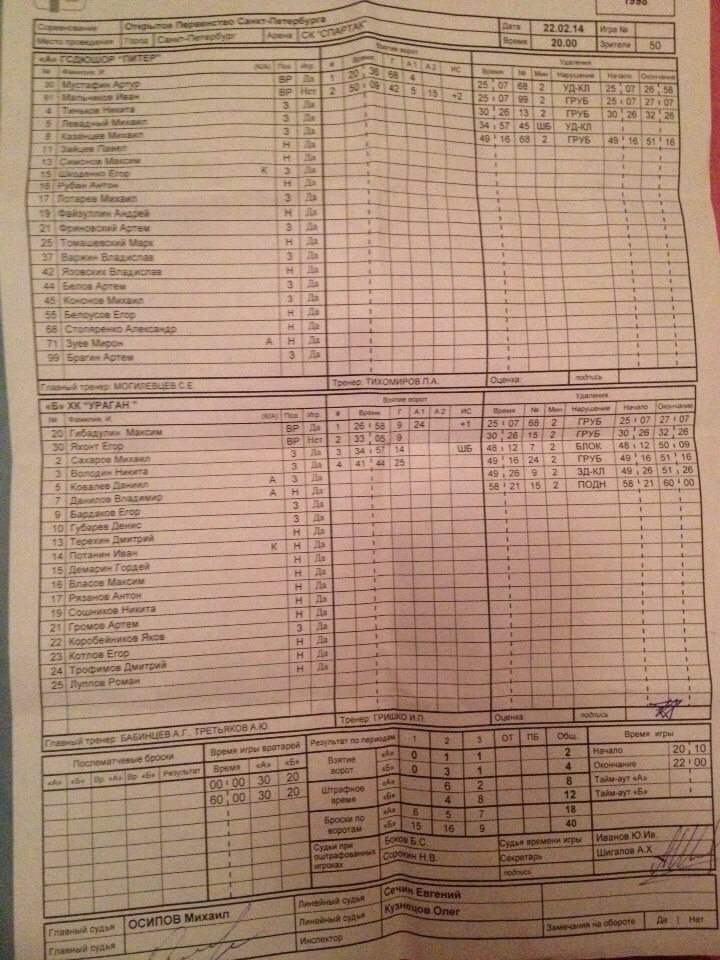 1998
Соревнование Открытое Первенство Санкт-Петербурга Дата 22.02.14 Игра №
Место проведения Город Санкт-Петербург Арена СК "СПАРТАК" Время 20.00 Зрители 50
«А» ГСДЮШОР "ПИТЕР" Взятие ворот Удаления
№ Фамилия, И. (К/А) Поз Игр # Время Г А 1 А 2 ИС Время № Мин Нарушение Начало Окончание
30 Мустафин Артур ВР Да 1 20 36 68 4 25 07 68 2 УД-КЛ 25 07 26 58
61 Мальчиков Иван ВР Нет 2 50 09 42 5 15 +2 25 07 99 2 ГРУБ 25 07 27 07
4 Тиньков Никита З Да 30 26 13 2 ГРУБ 30 26 32 26
5 Левадный Михаил З Да 34 57 45 ШБ УД-КЛ
8 Казанцев Михаил З Да 49 16 68 2 ГРУБ 49 16 51 16
11 Зайцев Павел Н Да
13 Симонов Максим Н Да
15 Шкоденко Егор К З Да
16 Рубан Антон Н Да
17 Лотарев Михаил З Да
19 Файзуллин Андрей Н Да
21 Фриновский Артем З Да
25 Томашевский Марк Н Да
37 Варжин Владислав З Да
42 Язовских Владислав Н Да
44 Белов Артем З Да
45 Кононов Михаил З Да
55 Белоусов Егор Н Да
68 Столяренко Александр Н Да
71 Зуев Мирон А Н Да
99 Брагин Артем З Да
Главный тренер: МОГИЛЕВЦЕВ С.Е Тренер: ТИХОМИРОВ П.А. Оценка: подпись
«Б» ХК "УРАГАН " Взятие ворот Удаления
№ Фамилия, И. (К/А) Поз Игр # Время Г А 1 А 2 ИС Время № Мин Нарушение Начало Окончание
20 Гибадулин Максим ВР Да 1 26 58 9 24 +1 25 07 68 2 ГРУБ 25 07 27 07
30 Яхонт Егор ВР Нет 2 33 05 9 30 26 15 2 ГРУБ 30 26 32 26
2 Сахаров Михаил З Да 3 34 57 14 ШБ 48 12 7 2 БЛОК 48 12 50 09
3 Володин Никита З Да 4 41 44 25 49 16 24 2 ГРУБ 49 16 51 16
5 Ковалев Даниил А З Да 49 26 9 2 ЗД-КЛ 49 26 51 26
7 Данилов Владимир А Н Да 58 21 15 2 ПОДН 58 21 60 00
9 Бардаков Егор З Да
10 Губарев Денис З Да
13 Терехин Дмитрий Н Да
14 Потанин Иван К Н Да
15 Демарин Гордей Н Да
16 Власов Максим Н Да
17 Рязанов Антон Н Да
19 Сошников Никита Н Да
21 Громов Артем Н Да
22 Коробейников Яков З Да
23 Котлов Егор Н Да
24 Трофимов Дмитрий Н Да
25 Луппов Роман Н Да
Главный тренер: БАБИНЦЕВ А.Г., ТРЕТЬЯКОВ А.Ю. Тренер: ГРИШКО И.П. Оценка: подпись
Послематчевые броски Время игры вратарей Результат по периодам 1 2 3 ОТ ПБ Общ. Время игры
«А» «Б» Вр «А» Вр «Б» Результат Время «А» «Б» Взятие ворот «А» 0 1 1 2 Начало 20 10
00 00 30 20 «Б» 0 3 1 4 Окончание 22 00
60 00 30 20 Штрафное время «А» 6 2 8 Тайм-аут «А»
«Б» 4 8 12 Тайм-аут «Б»
Броски по воротам «А» 6 5 7 18
«Б» 15 16 9 40
Судьи при оштрафованных игроках Боков Б.С. Судья времени игры Иванов Ю.Ив.
Сорокин Н.В. Секретарь Шигапов А.Х
подпись
Главный судья ОСИПОВ Михаил Линейный судья Сечин Евгений
Главный судья Линейный судья Кузнецов Олег
Инспектор Замечания на обороте Да Нет